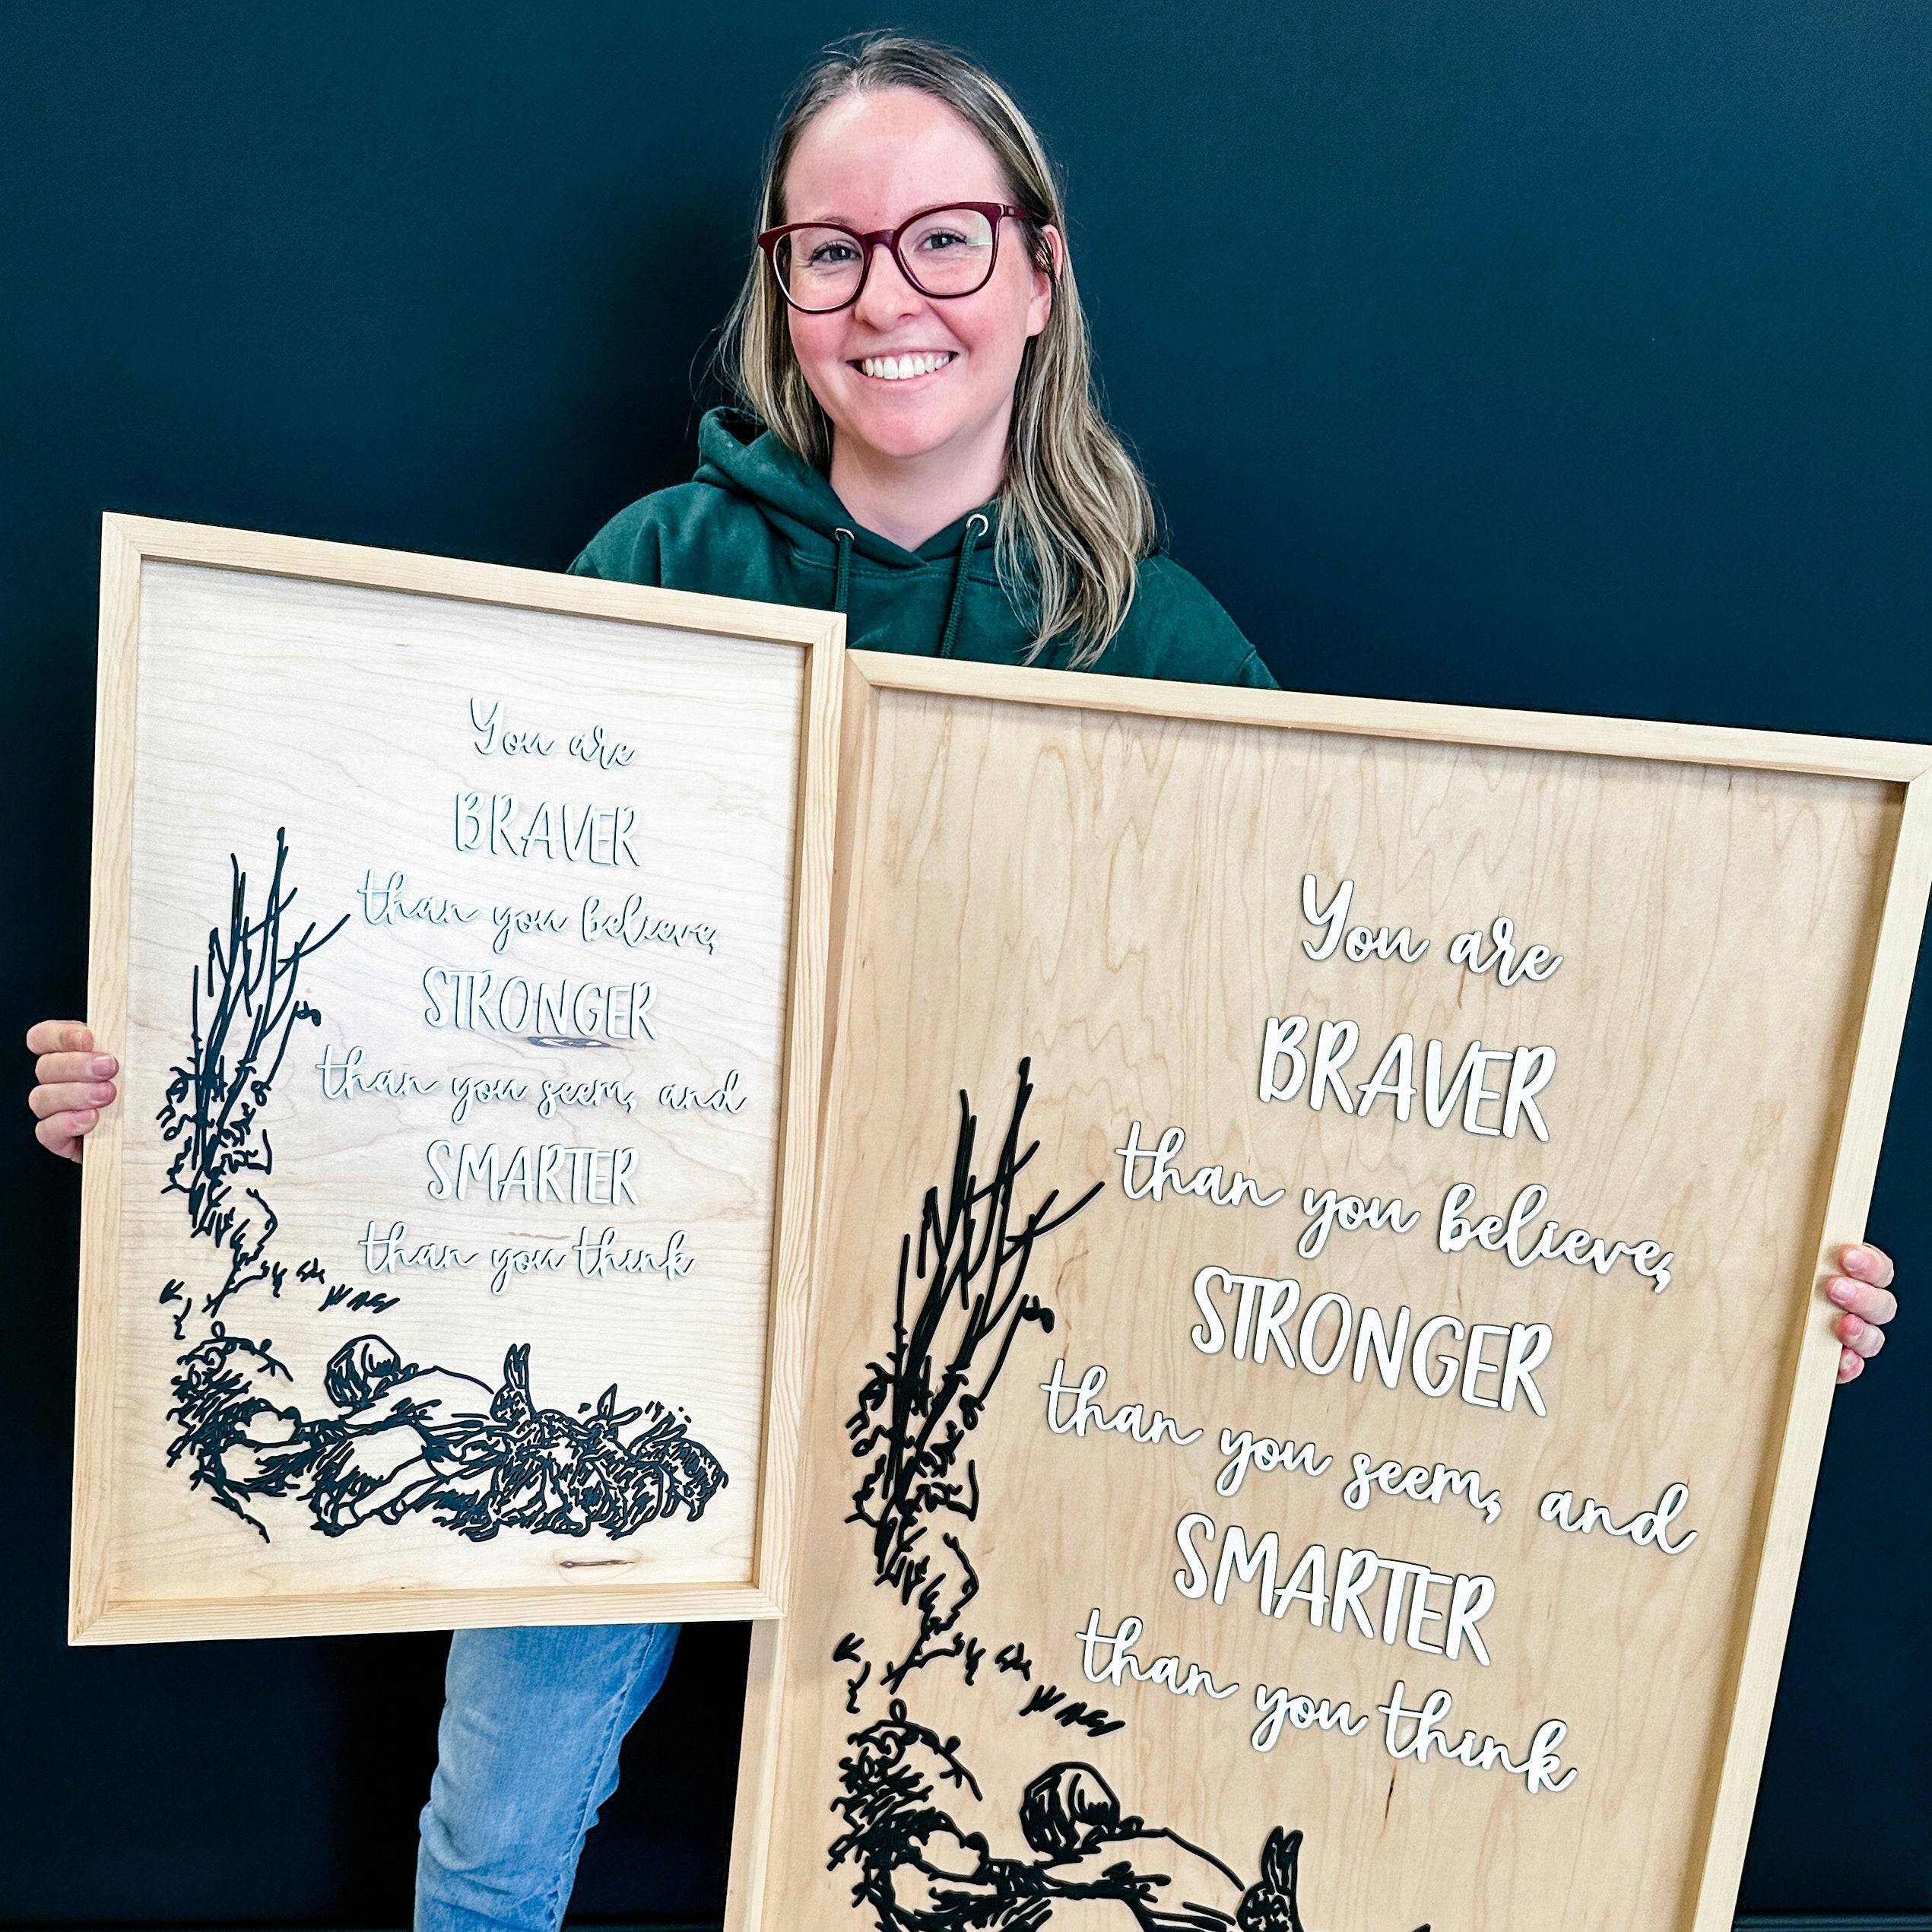 You are
BRAVER
than you believe,
STRONGER
than you seem, and
SMARTER
than you think
You are
BRAVER
than you believe,
STRONGER
than you seem, and
SMARTER
than you think